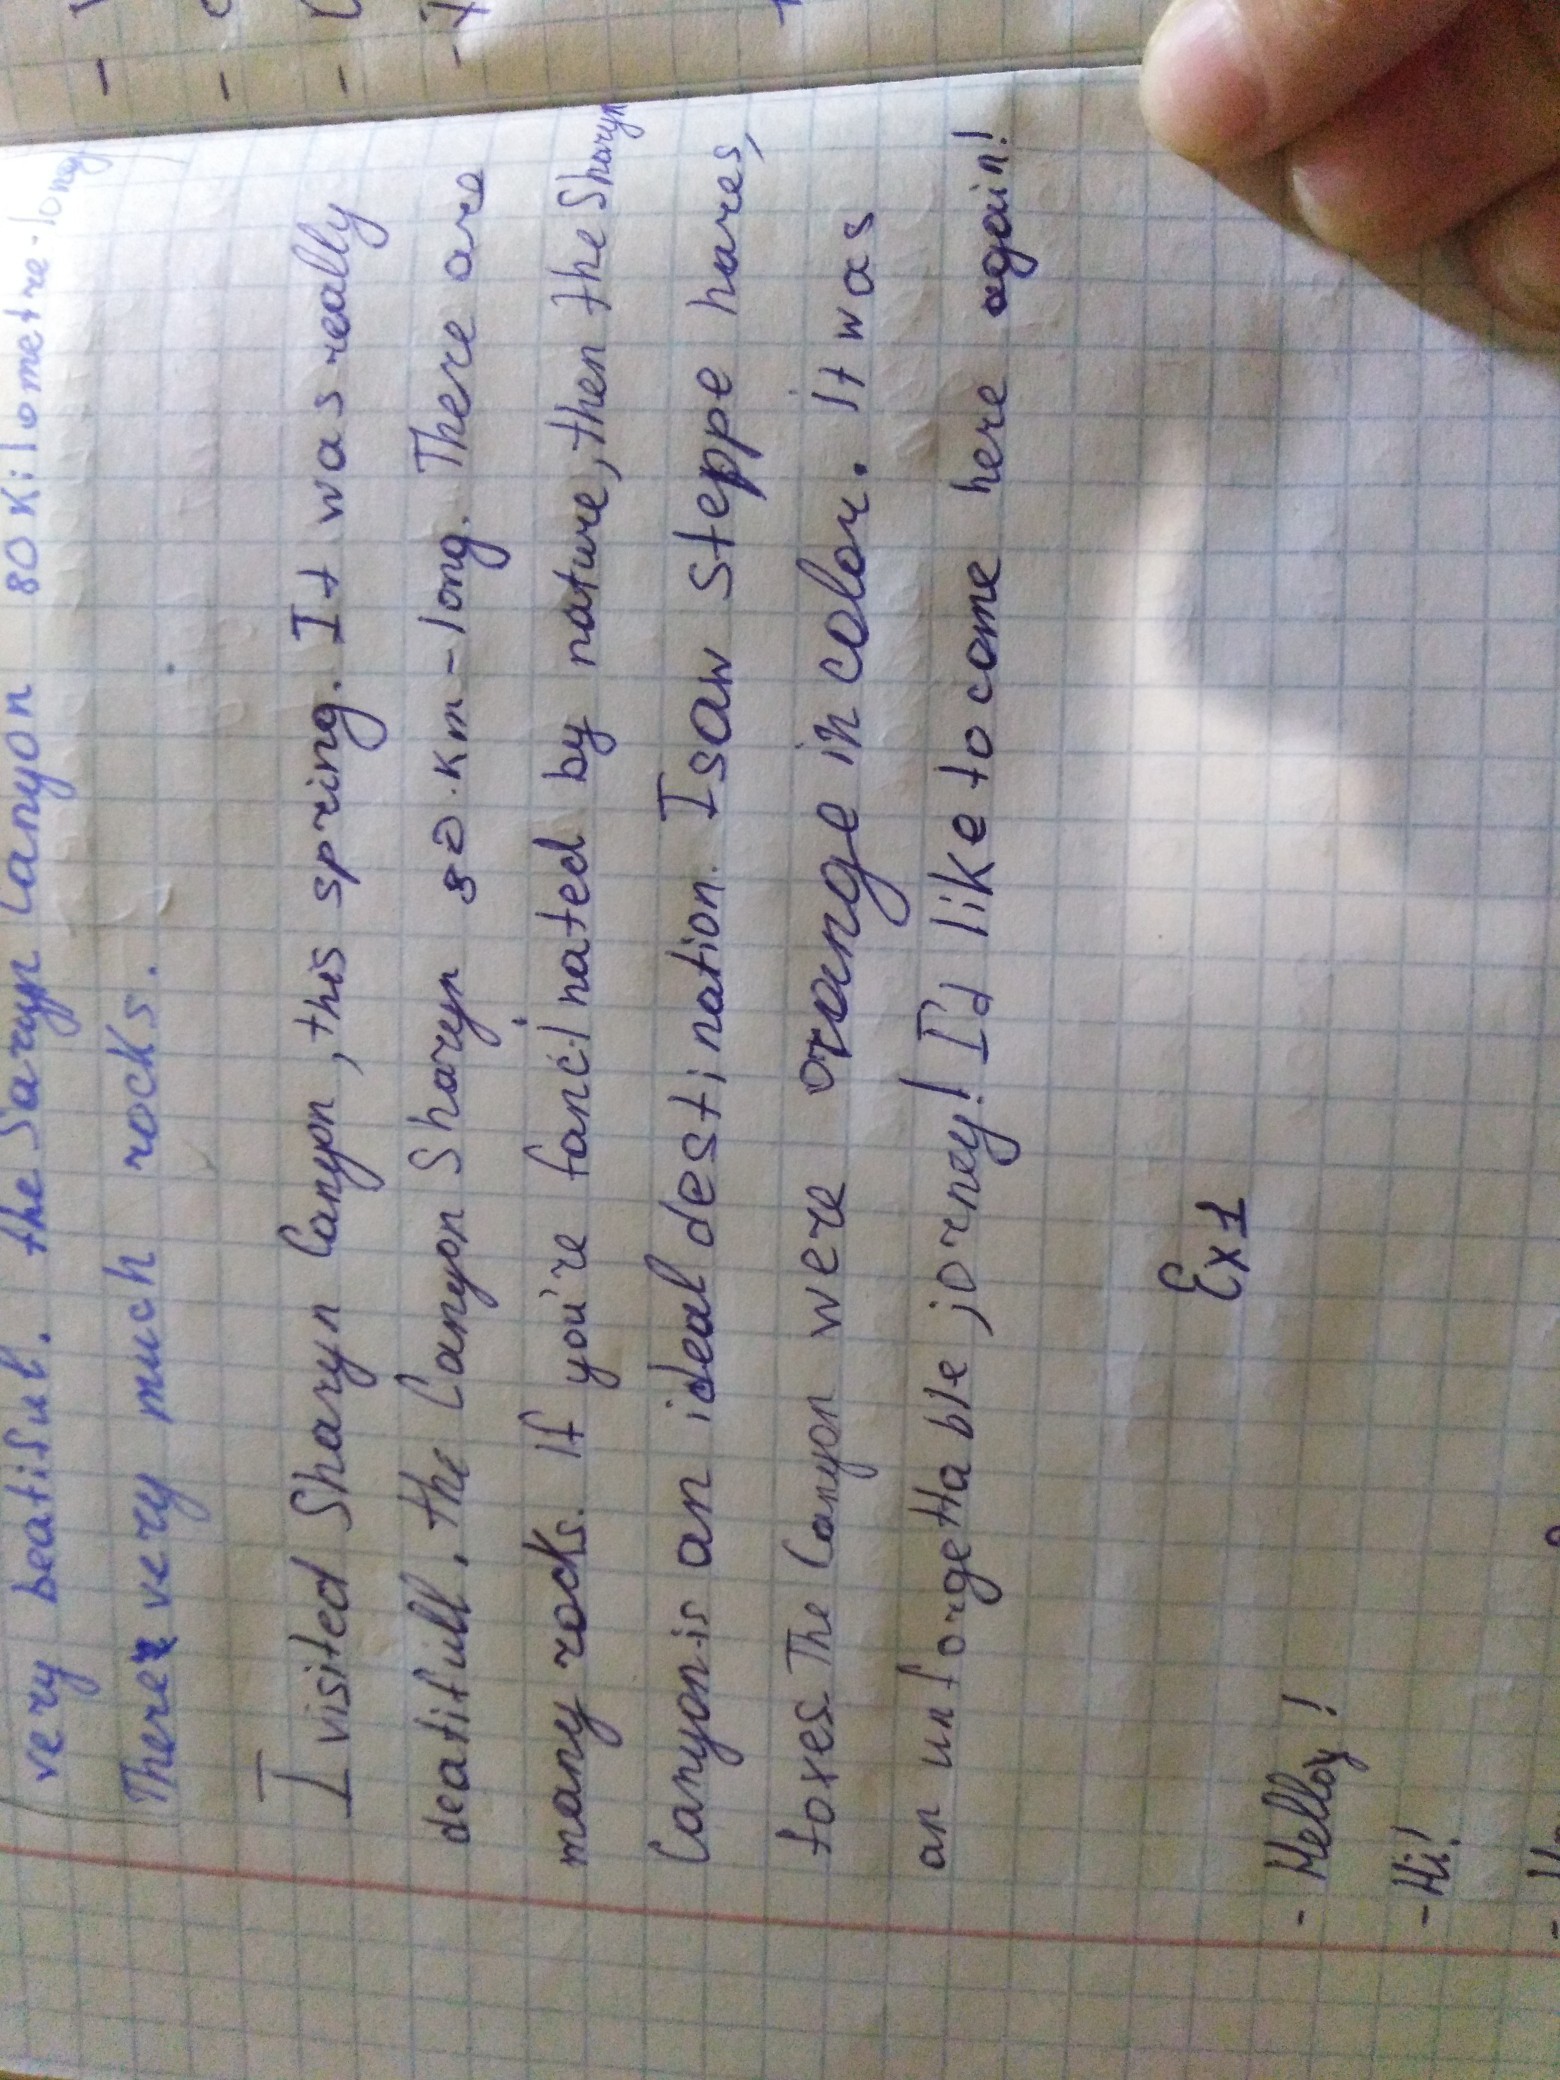 very beatiful. the Saryn Canyon 80 kilometre-long
There very much rocks.
I visited Sharyn Canyon, this spring. It was really
deatifull. the Canyon Sharyn 80.km-long. There are
many rocks. If you're fancinated by nature, then the Sharyn
Canyon is an ideal destination. I saw steppe hares,
foxes. The Canyon were orange in color. It was
an unforgettable jorney! I'd like to come here again!
Ex1
- Helloy!
- Hi!